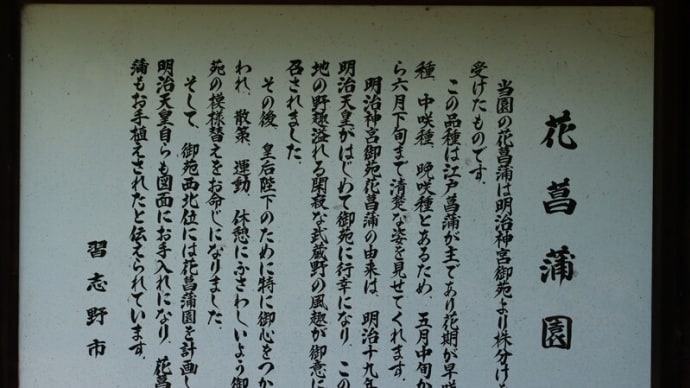 花菖蒲園
当園の花菖蒲は明治神宮御苑より株分けを
受けたものです。
この品種は江戸菖蒲が主であり花期が早咲
種、中咲種、晩咲種とあるため、五月中旬か
ら六月下旬まで清楚な姿を見せてくれます。
明治神宮御苑花菖蒲の由来は、明治十九年
明治天皇がはじめて御苑に行幸になり、この
地の野趣溢れる閑寂な武蔵野の風趣が御意に
召されました。
その後、皇后陛下のために特に御心をつか
われ、散策、運動、休憩にふさわしいよう御
苑の模様替えをお命じになりました。
そして、御苑西北位には花菖蒲園を計画し
明治天皇自らも図面にお手入れになり、花菖
蒲もお手植えされたと伝えられています。
習志野市